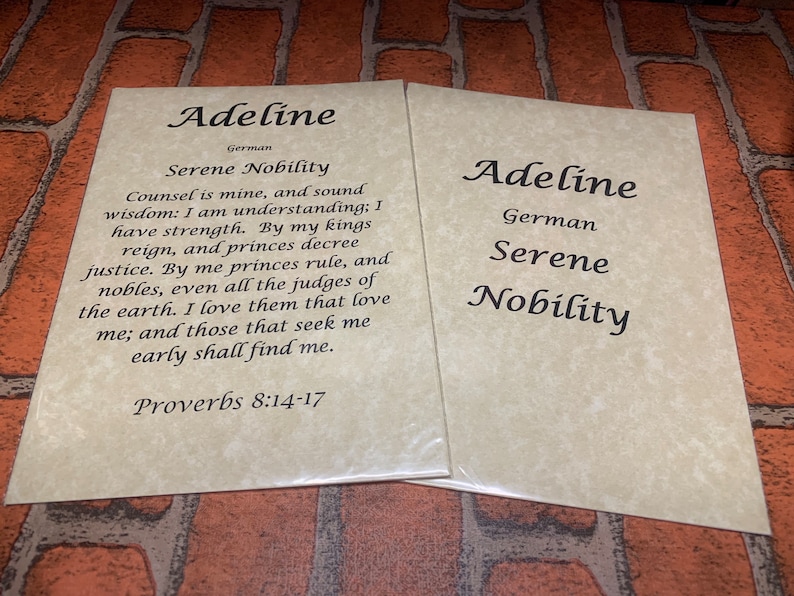 Adeline
German
Serene Nobility
Counsel is mine, and sound
wisdom: I am understanding; I
have strength. By my kings
reign, and princes decree
justice. By me princes rule, and
nobles, even all the judges of
the earth. I love them that love
me; and those that seek me
early shall find me.
Proverbs 8:14-17
Adeline
German
Serene
Nobility